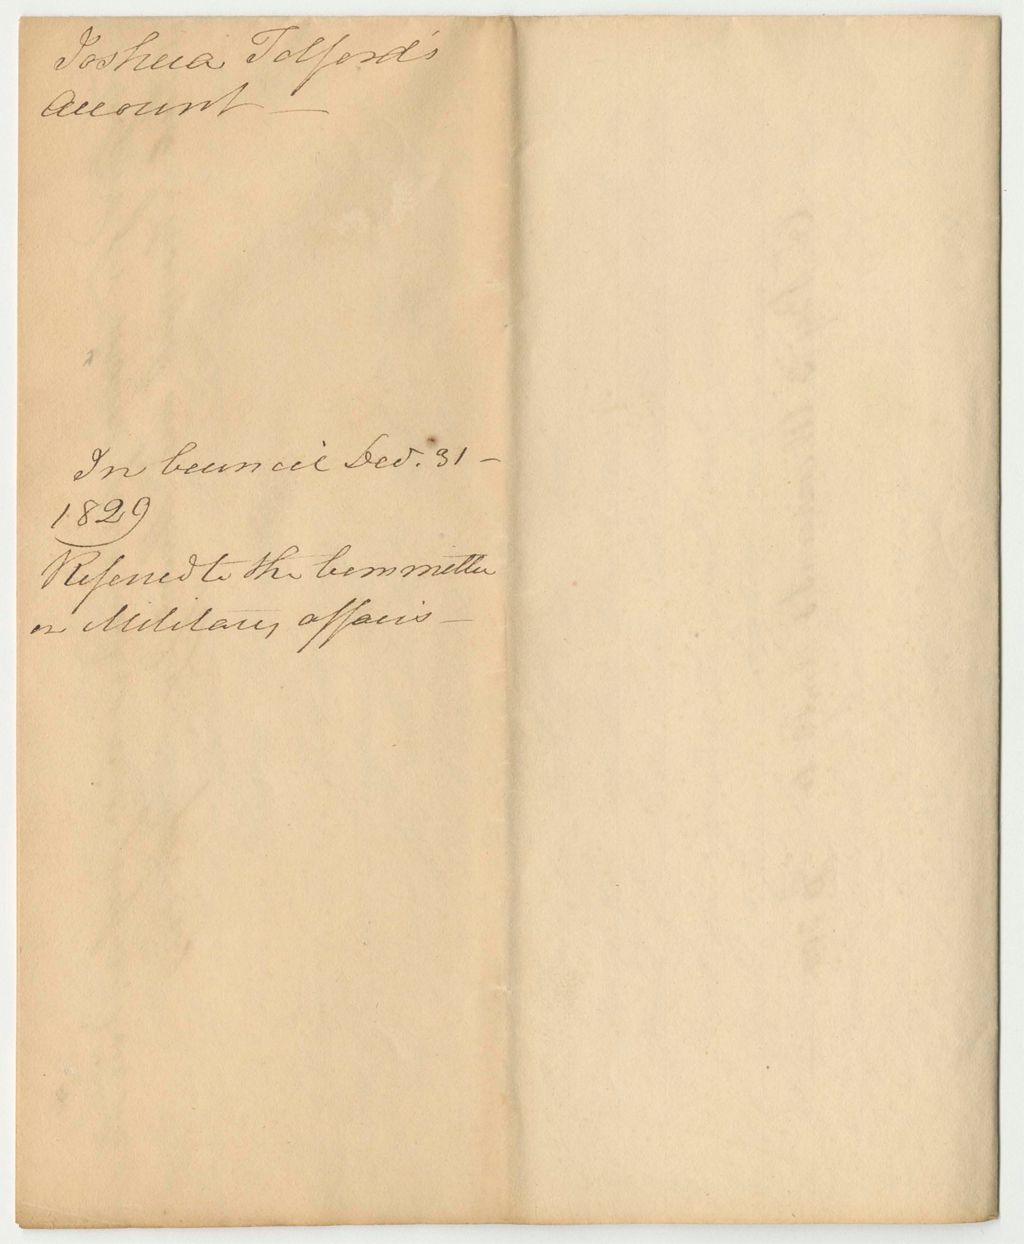 Joshua Tolford's
Account —
In Council Dec. 31 –
1829
Referred to the Committee
on Military affairs —